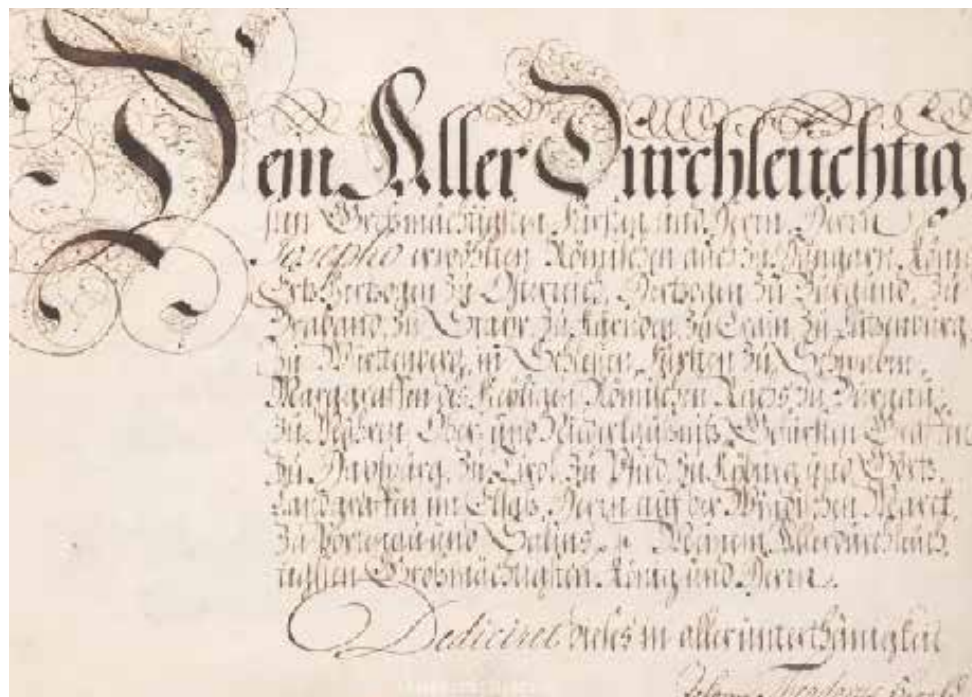 Dem Aller Durchleuchtig
sten Großmächtigsten Fürsten und Herrn, Herrn
Josepho erwöhlten Römischen auch zu Hungarn König
Ertzhertzogen zu Österreich, Hertzogen zu Burgund, zu
Braband, zu Steyr, zu Kärnden, zu Crain, zu Lützenburg,
zu Württenberg, in Schlesien, Fürsten zu Schwaben,
Marggraffen des Heyligen Römischen Reichs, zu Burgau,
zu Mähren, Ober und Niderlaußnits, Gefürsten Graffen
zu Habsburg, zu Tirol, zu Pfird, zu Kyburg und Görtz,
Landgraffen im Elsas, Herrn auf der Windischen Marck,
zu Portenau und Salins, Meinem Allerdurchleuch
tigsten Großmächtigsten König und Herrn.
Dediciret dieses in aller unterthänigkeit
Johann